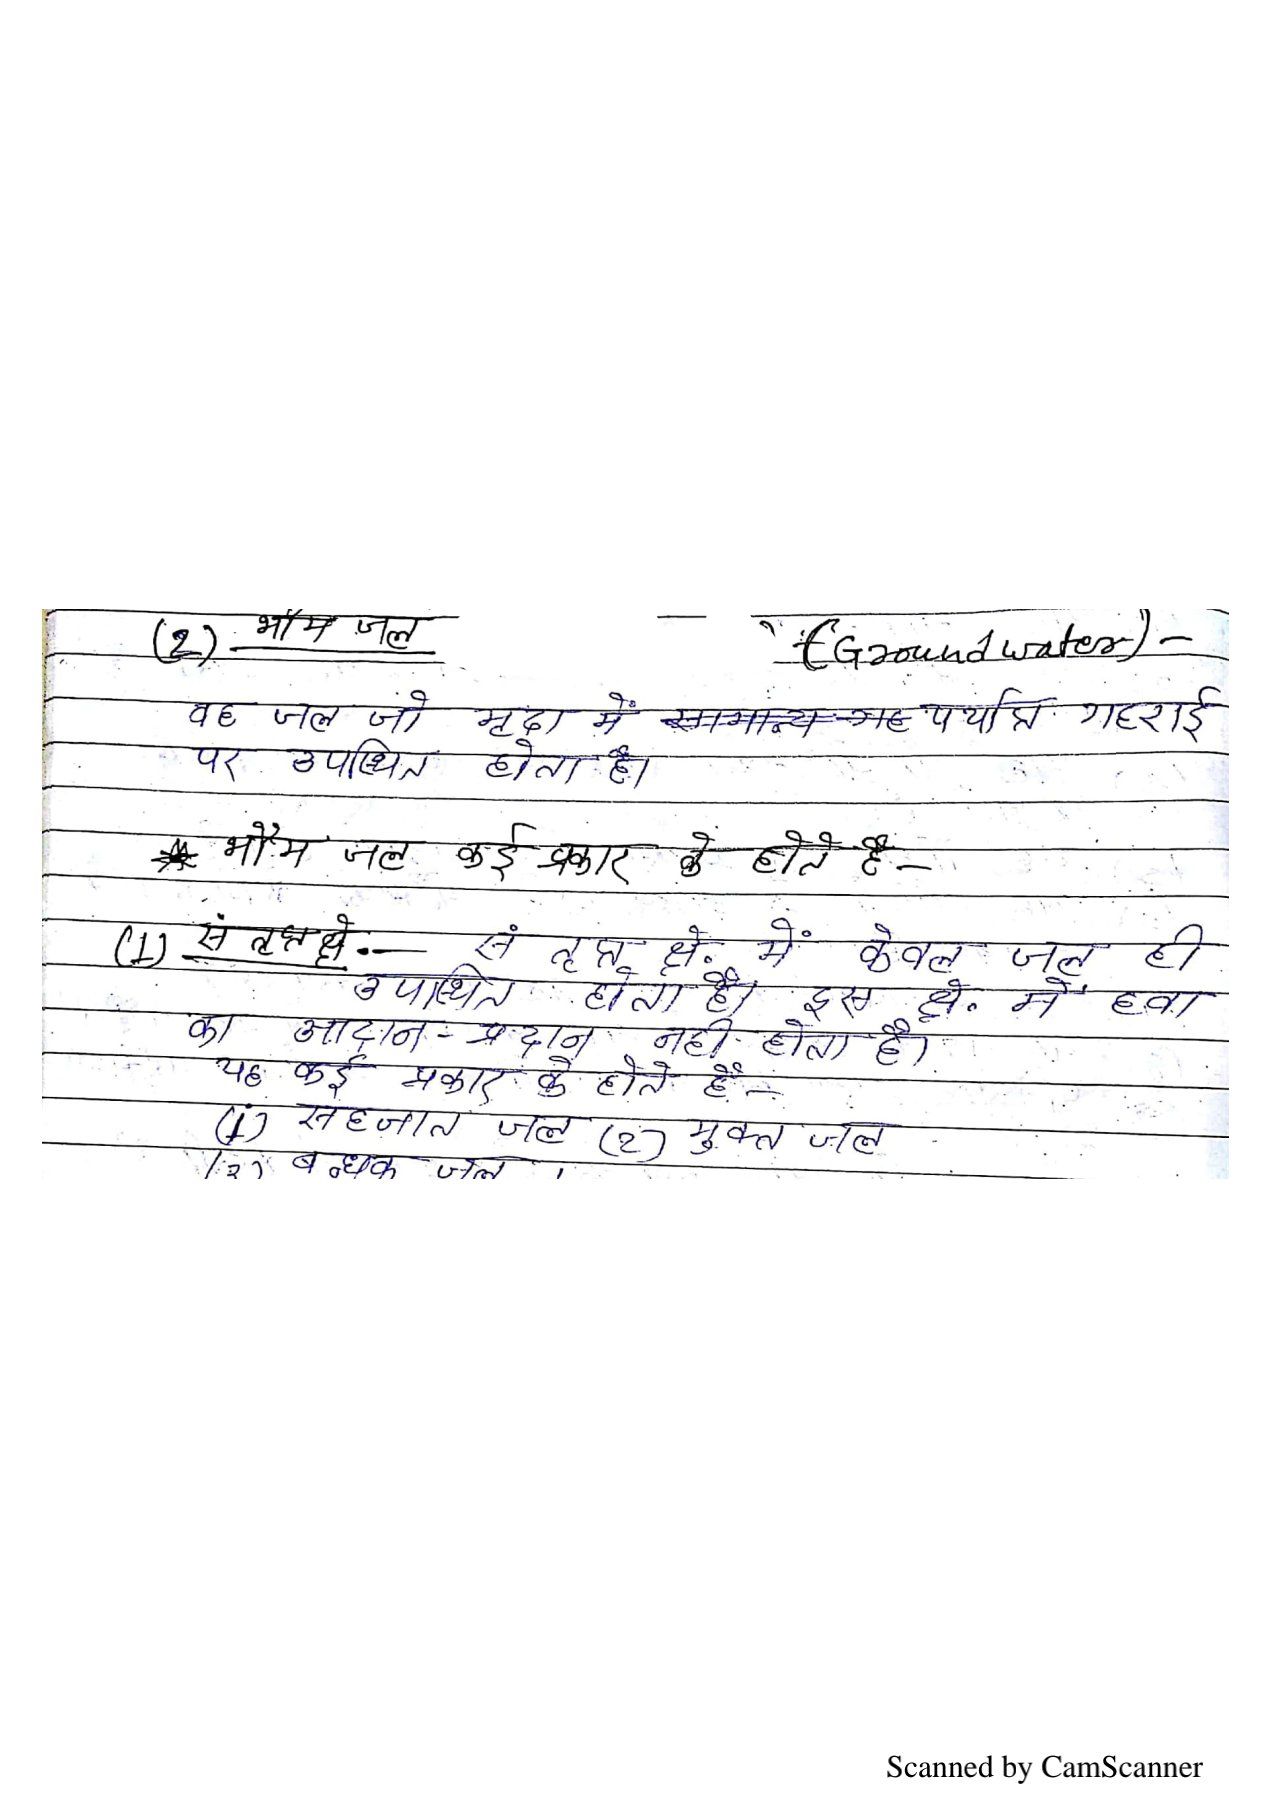 (2) भौम जल — (Groundwater) –
वह जल जो मृदा में सामान्य गह पर्याप्त गहराई
पर उपस्थित होता है।
* भौम जल कई प्रकार के होते है –
(1) संतृप्त क्षे. – संतृप्त क्षे. में केवल जल ही
उपस्थित होता है। इस क्षे. में हवा
का आदान-प्रदान नही होता है।
यह कई प्रकार के होते हैं –
(1) सहजात जल (2) मुक्त जल
(3) बन्धक जल
Scanned by CamScanner